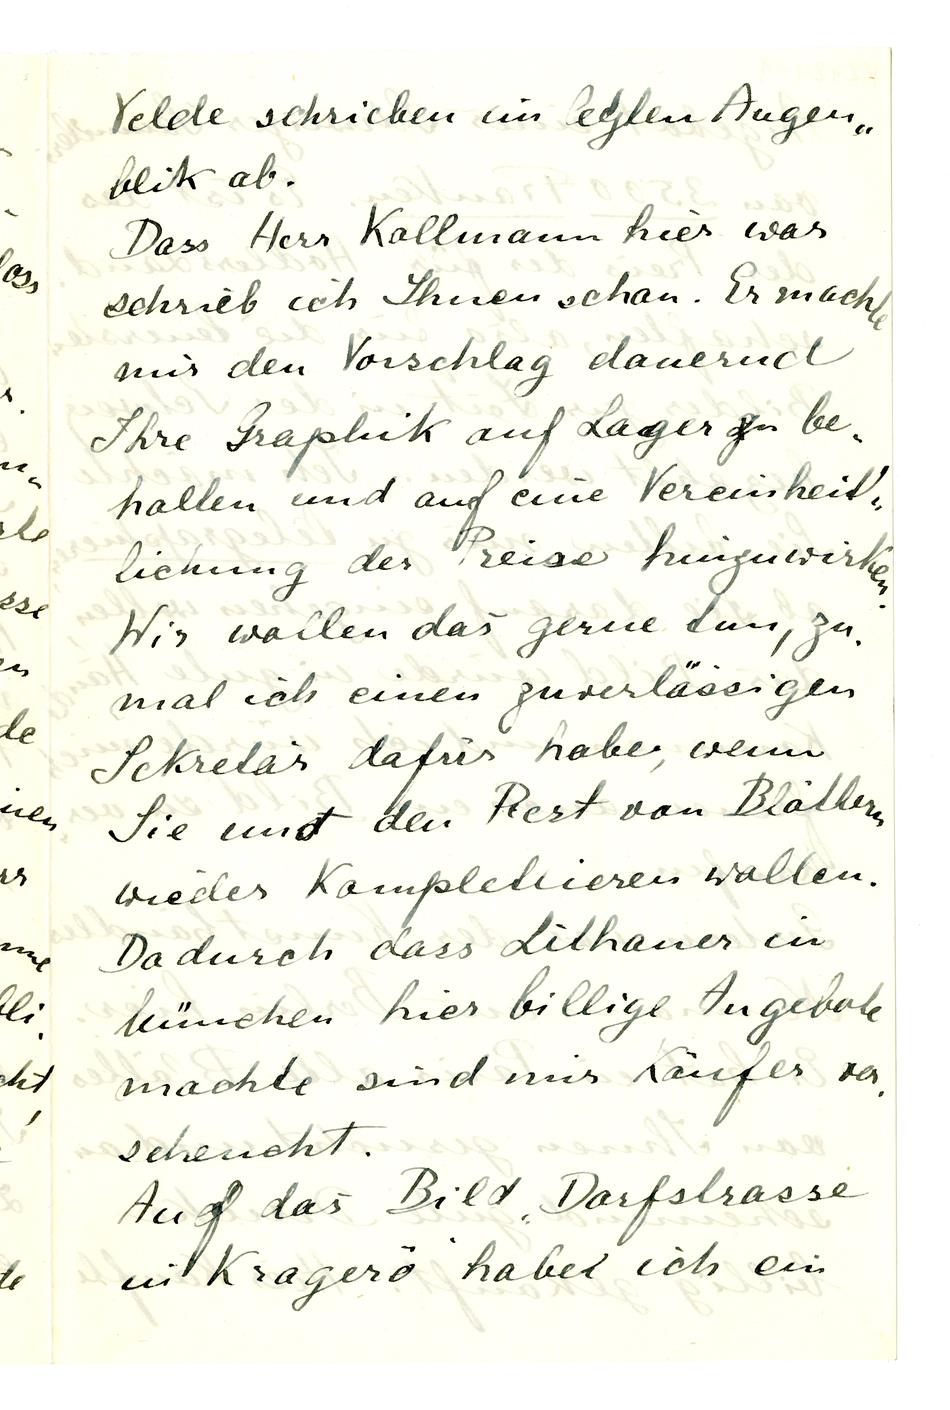 Velde schrieben im letzten Augen„
blik ab.
Dass Herr Kollmann hier war
schrieb ich Ihnen schon. Er machte
mir den Vorschlag dauernd
Ihre Graphik auf Lager zu be-
halten und auf eine Vereinheit„
lichung der Preise hinzuwirken.
Wir wollen das gerne tun, zu-
mal ich einen zuverlässigen
Sekretär dafür habe, wenn
Sie und den Rest von Blättern
wieder Komplettieren wollen.
Dadurch dass Lithauer in
München hier billige Angebote
machte sind mir Käufer ver-
scheucht.
Auf das Bild „Dorfstrasse
in Kragerö" habe ich ein
loss
r.
rte
sse
en
de
inen
rr
bli-
cht,
te